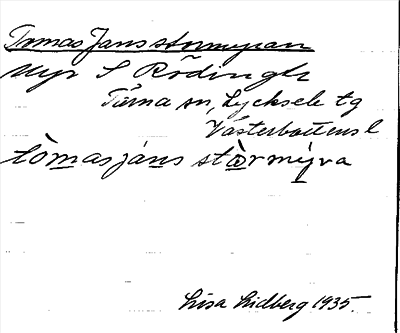 Tomas Jans stormyran
Myr S Rödingh
Tärna sn, Lycksele tg
Västerbottens l
tòmasjáns stàrmẏva
Lisa Lidberg 1935.